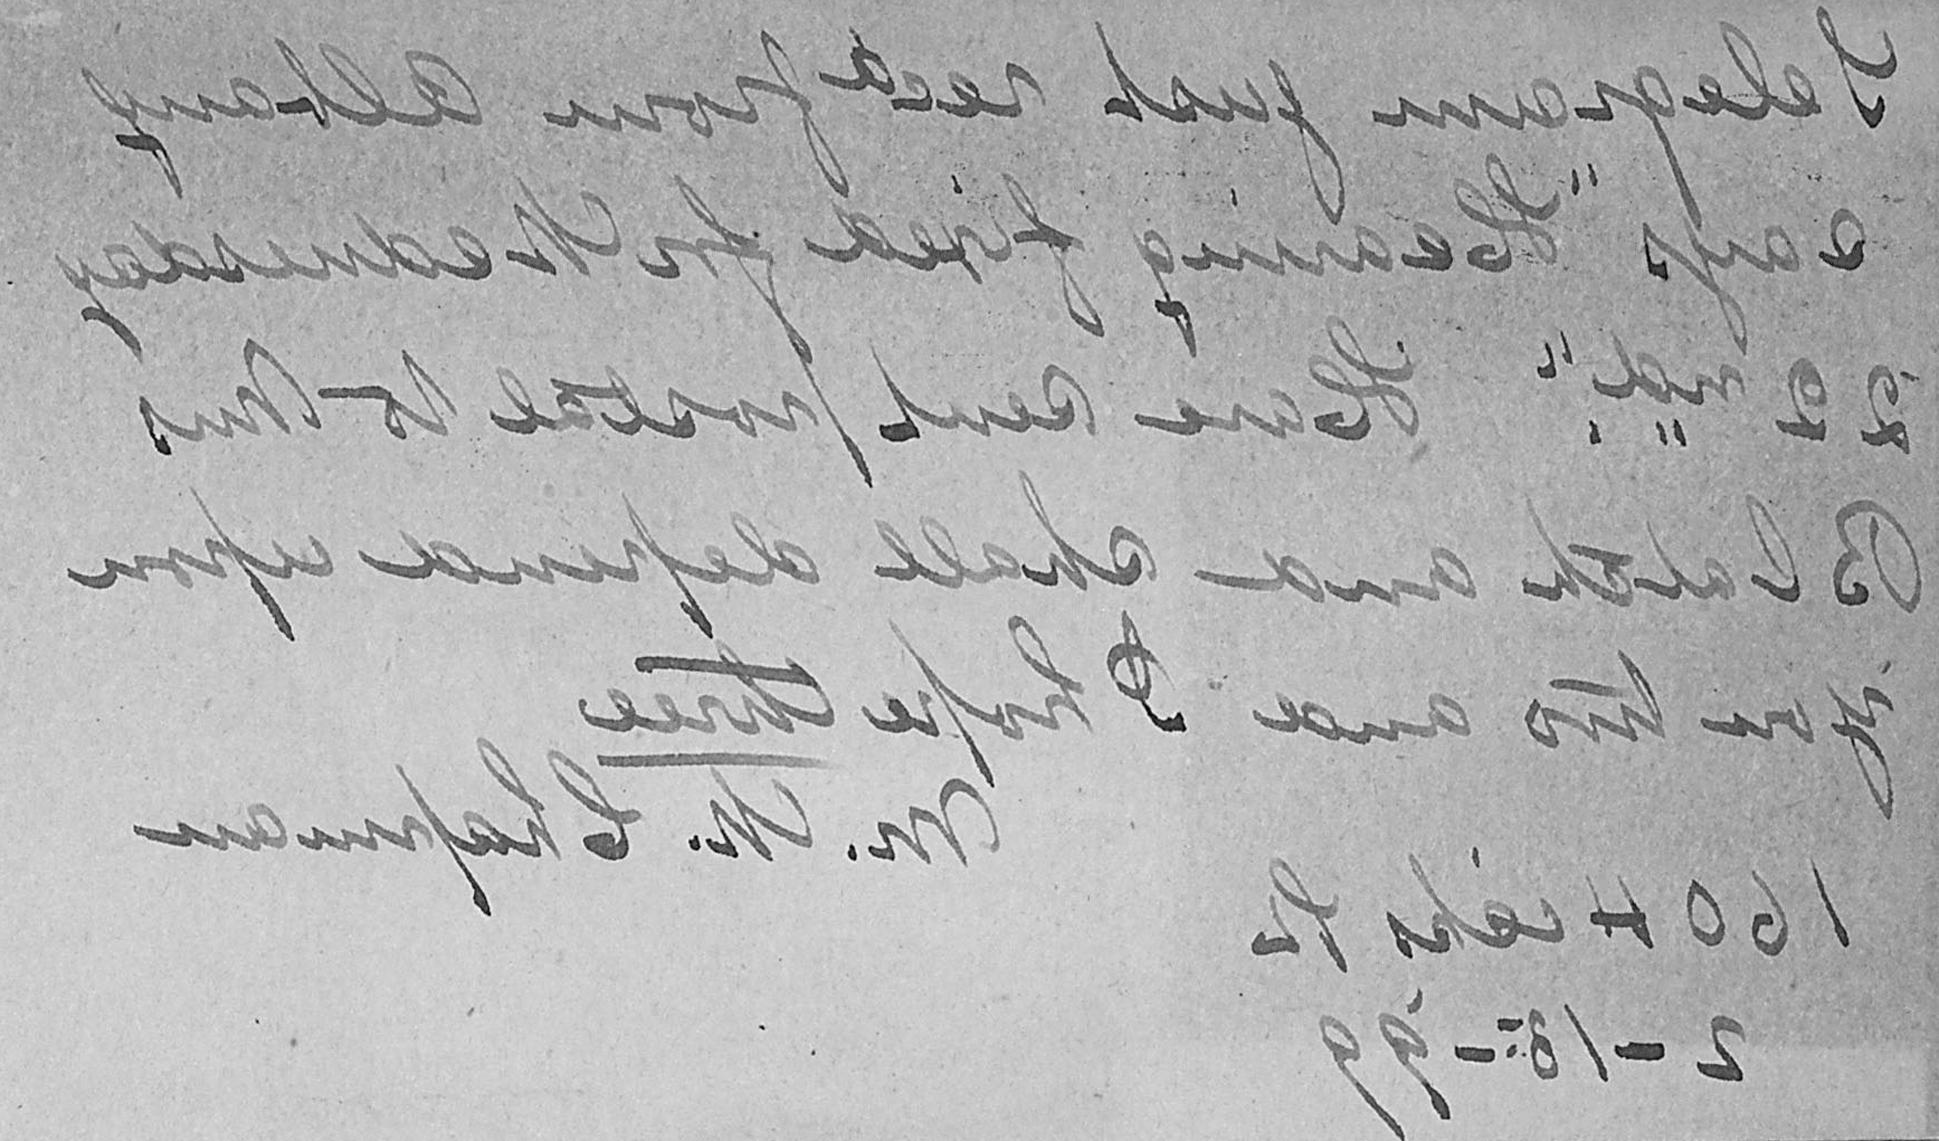 Telegram just recd from Albany
says "Hearing fixed for Wednesday
22nd". Have sent postal to Mrs
Blatch and shall depend upon
you two and I hope three
M. W. Chapman
160 4
2-18-99